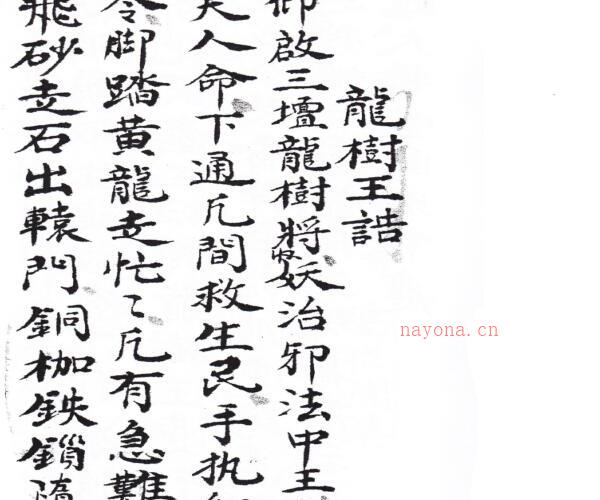 龍樹王誥
仰啟三壇龍樹將收妖治邪法中王
夫人命下通凡間救生民手执
令脚踏黄龍走忙〻凡有急難
飛砂走石出轅门銅枷鉄鎖
nayona.cn